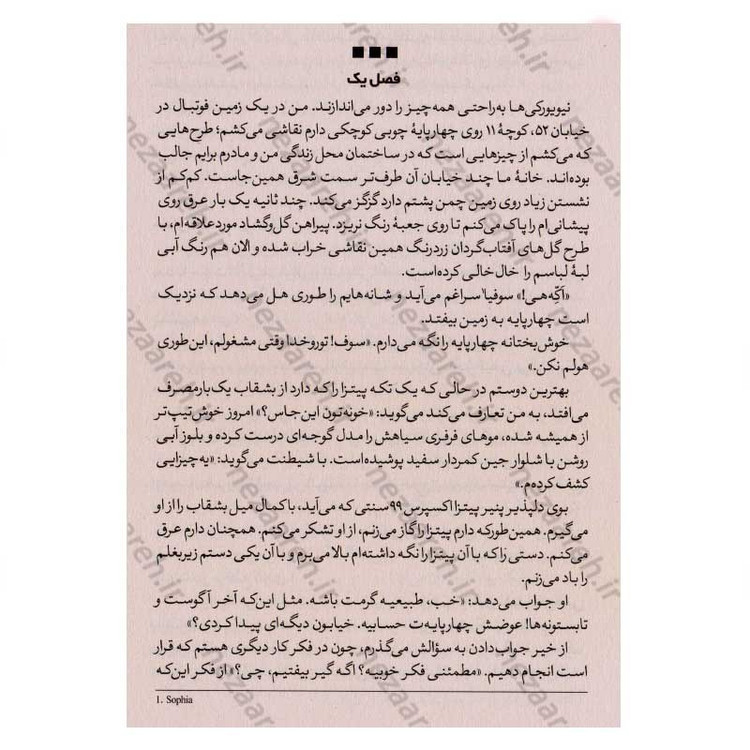 فصل یک
نیویورکی‌ها به‌راحتی همه‌چیز را دور می‌اندازند. من در یک زمین فوتبال در
خیابان ۵۲، کوچهٔ ۱۱ روی چهارپایهٔ چوبی کوچکی دارم نقاشی می‌کشم؛ طرح‌هایی
که می‌کشم از چیزهایی است که در ساختمان محل زندگی من و مادرم برایم جالب
بوده‌اند. خانهٔ ما چند خیابان آن طرف‌تر سمت شرق همین‌جاست. کم‌کم از
نشستن زیاد روی زمین چمن پشتم دارد گزگز می‌کند. چند ثانیه یک بار عرق روی
پیشانی‌ام را پاک می‌کنم تا روی جعبهٔ رنگ نریزد. پیراهن گل‌وگشاد موردعلاقه‌ام، با
طرح گل‌های آفتاب‌گردان زردرنگ همین نقاشی خراب شده و الان هم رنگ آبی
لبهٔ لباسم را خال‌خالی کرده‌است.
«اَکِّه‌هی!» سوفیا¹ سراغم می‌آید و شانه‌هایم را طوری هل می‌دهد که نزدیک
است چهارپایه به زمین بیفتد.
خوش‌بختانه چهارپایه را نگه می‌دارم. «سوف! توروخدا وقتی مشغولم، این‌طوری
هولم نکن.»
بهترین دوستم در حالی که یک تکه پیتزا را که دارد از بشقاب یک‌بارمصرف
می‌افتد، به من تعارف می‌کند می‌گوید: «خونه‌تون این‌جاس؟» امروز خوش‌تیپ‌تر
از همیشه شده، موهای فرفری سیاهش را مدل گوجه‌ای درست کرده و بلوز آبی
روشن با شلوار جین کمردار سفید پوشیده‌است. با شیطنت می‌گوید: «یه‌چیزایی
کشف کرده‌م.»
بوی دلپذیر پنیر پیتزا اکسپرس ۹۹سنتی که می‌آید، با کمال میل بشقاب را از او
می‌گیرم. همین‌طورکه دارم پیتزا را گاز می‌زنم، از او تشکر می‌کنم. همچنان دارم عرق
می‌کنم. دستی را که با آن پیتزا را نگه داشته‌ام بالا می‌برم و با آن یکی دستم زیربغلم
را باد می‌زنم.
او جواب می‌دهد: «خب، طبیعیه گرمت باشه. مثل این‌که آخر آگوست و
تابستونه‌ها! عوضش چهارپایه‌ت حسابیه. خیابون دیگه‌ای پیدا کردی؟»
از خیر جواب‌دادن به سؤالش می‌گذرم، چون در فکر کار دیگری هستم که قرار
است انجام دهیم. «مطمئنی فکر خوبیه؟ اگه گیر بیفتیم، چی؟» از فکر این‌که
1. Sophia
nezaareh.ir